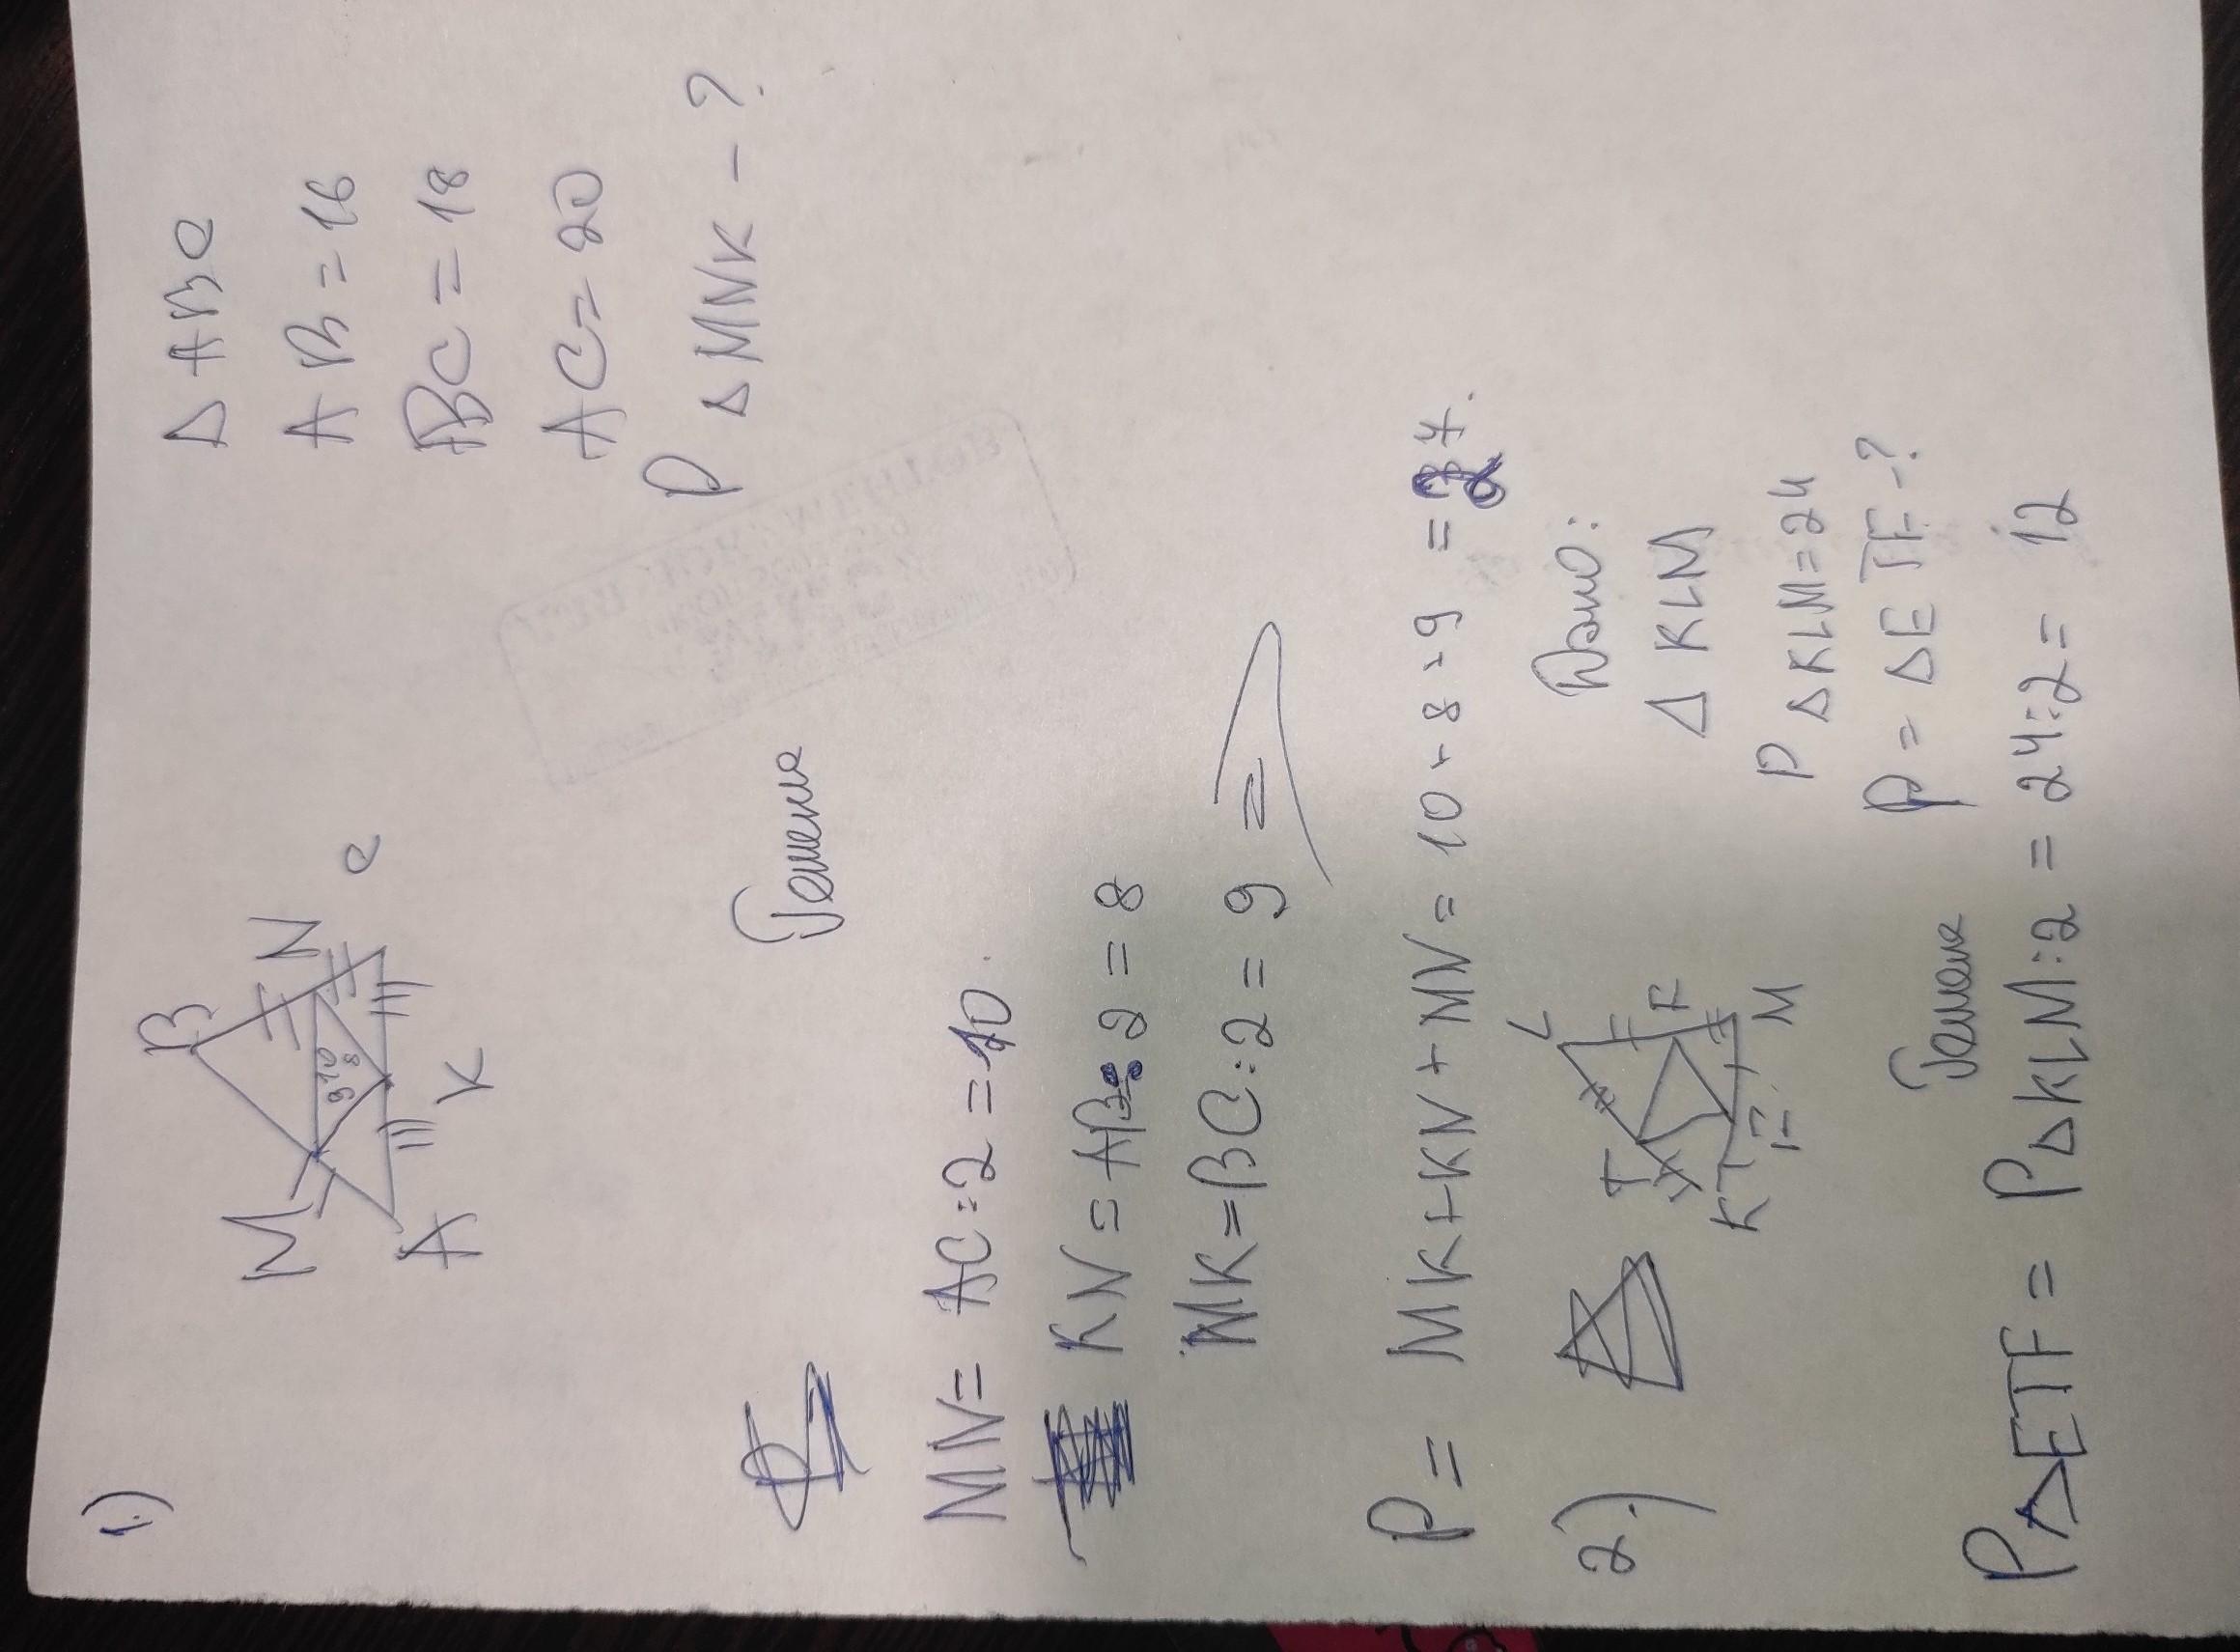 1.)
B
M N
9 10
8
A K C
Δ ABC
AB = 16
BC = 18
AC = 20
P Δ MNK - ?
Решение
MN = AC:2 = 10.
KN = AB:2 = 8
MK = BC:2 = 9 =
P = MK + KN + MN = 10 + 8 + 9 = 27.
2.)
L
T F
K E M
Дано:
Δ KLM
P Δ KLM = 24
P = Δ ETF - ?
Решение
PΔETF = PΔKLM:2 = 24:2 = 12